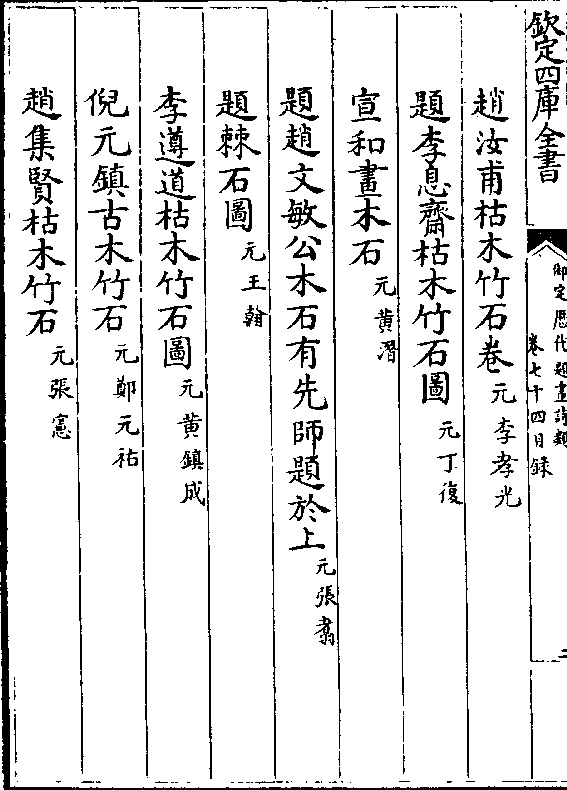 欽定四庫全書
御定歴代題畫詩類
卷七十四目録
二
趙汝甫枯木竹石卷 元李孝光
題李息齋枯木竹石圖 元丁復
宣和畫木石 元黃溍
題趙文敏公木石有先師題於上 元張翥
題棘石圖 元王翰
李遵道枯木竹石圖 元黃鎮成
倪元鎮古木竹石 元鄭元祐
趙集賢枯木竹石 元張憲